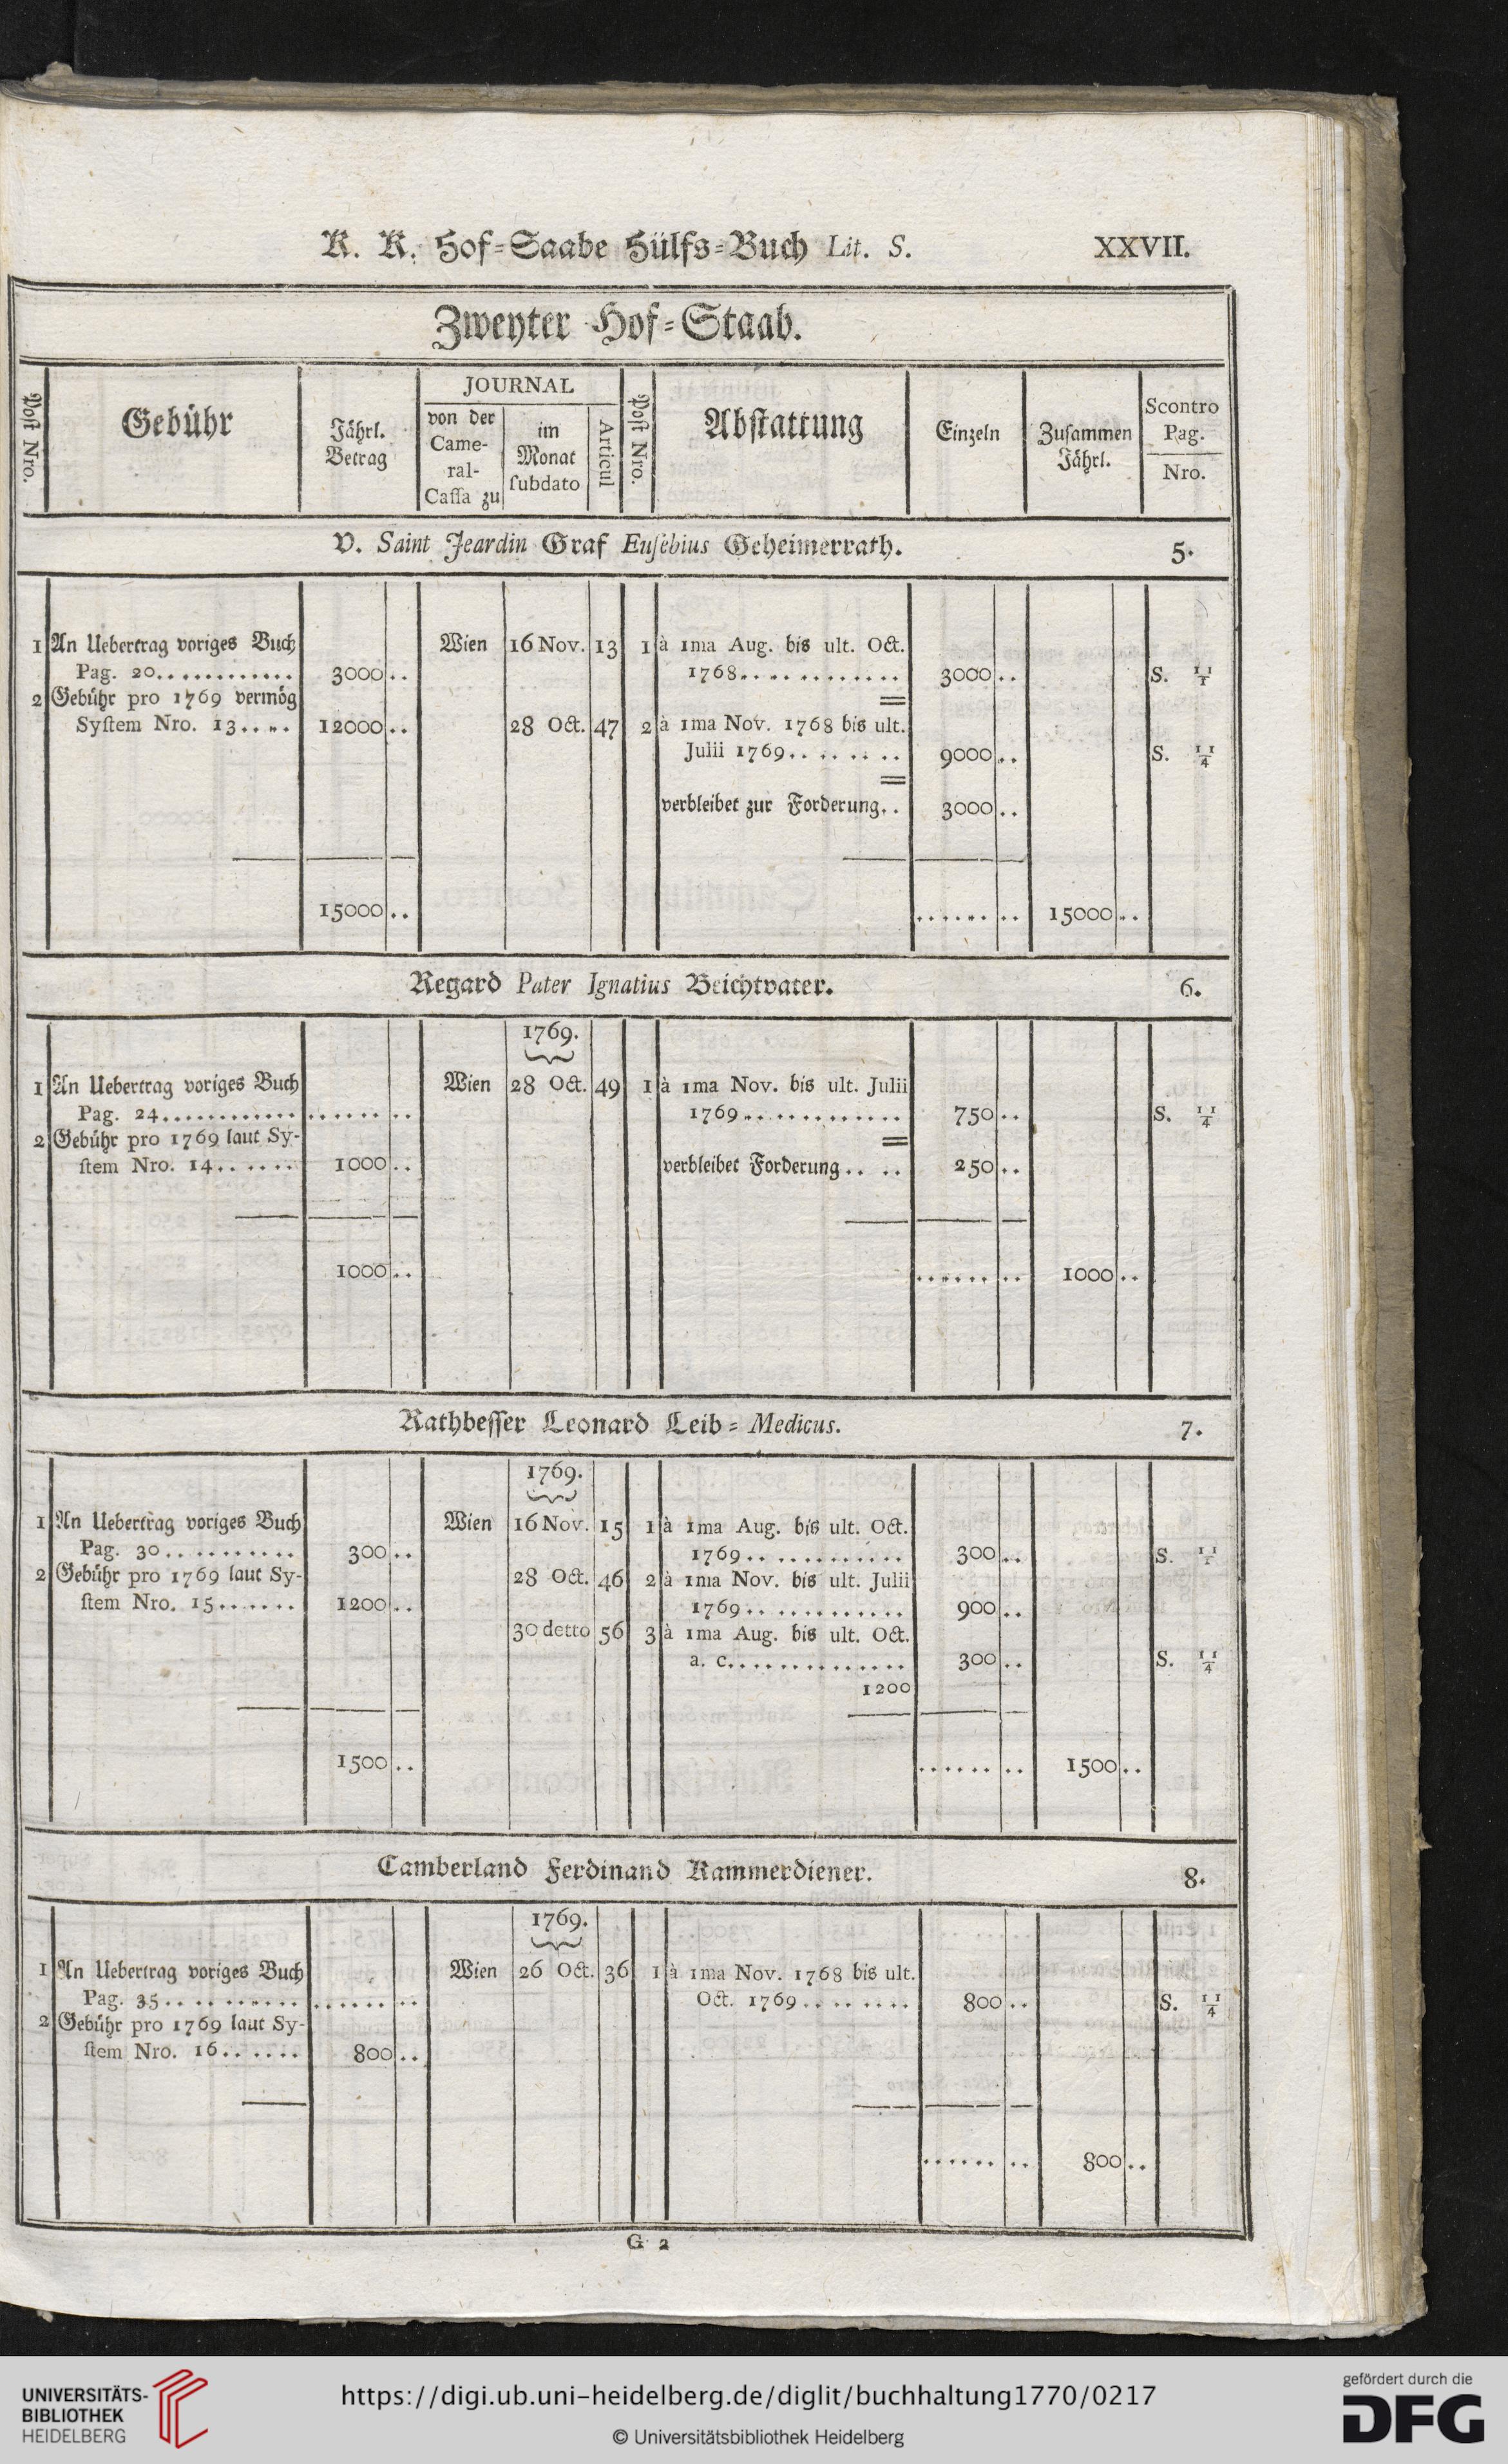 K. K. Hof-Saabe Hülfs-Buch Lit. S. XXVII.
Zweyter Hof-Staab.
Post Nro. Gebühr Jährl. Betrag JOURNAL von der Cameral-Cassa zu im Monat subdato Articul Post Nro. Abstattung Einzeln Zusammen Jährl. Scontro Pag. Nro.
V. Saint Jeardin Graf Eusebius Geheimerrath. 5.
1 An Uebertrag voriges Buch Wien 16 Nov. 13 1 à 1ma Aug. bis ult. Oct.
Pag. 20............ 3000.. 1768............ 3000.. S. 11/1
2 Gebühr pro 1769 vermög
System Nro. 13..... 12000.. 28 Oct. 47 2 à 1ma Nov. 1768 bis ult.
Julii 1769........ 9000.. S. 11/4
verbleibet zur Forderung.. 3000..
15000.. ........ 15000..
Regard Pater Ignatius Beichtvater. 6.
1769.
1 An Uebertrag voriges Buch Wien 28 Oct. 49 1 à 1ma Nov. bis ult. Julii
Pag. 24............ ........ 1769............ 750.. S. 11/4
2 Gebühr pro 1769 laut Sy-
stem Nro. 14...... 1000.. verbleibet Forderung.... 250..
1000.. ........ 1000..
Rathbesser Leonard Leib-Medicus. 7.
1769.
1 An Uebertrag voriges Buch Wien 16 Nov. 15 1 à 1ma Aug. bis ult. Oct.
Pag. 30.......... 300.. 1769............ 300.. S.
2 Gebühr pro 1769 laut Sy- 28 Oct. 46 2 à 1ma Nov. bis ult. Julii
stem Nro. 15...... 1200.. 1769............ 900..
30 detto 56 3 à 1ma Aug. bis ult. Oct.
a. c.............. 300.. S. 11/4
1200
1500.. ........ 1500..
Camberland Ferdinand Kammerdiener. 8.
1769.
1 An Uebertrag voriges Buch Wien 26 Oct. 36 1 à 1ma Nov. 1768 bis ult.
Pag. 35.......... ........ Oct. 1769........ 800.. S. 11/4
2 Gebühr pro 1769 laut Sy-
stem Nro. 16...... 800..
........ 800..
G 2
UNIVERSITÄTS-
BIBLIOTHEK
HEIDELBERG
https://digi.ub.uni-heidelberg.de/diglit/buchhaltung1770/0217
© Universitätsbibliothek Heidelberg
gefördert durch die
DFG